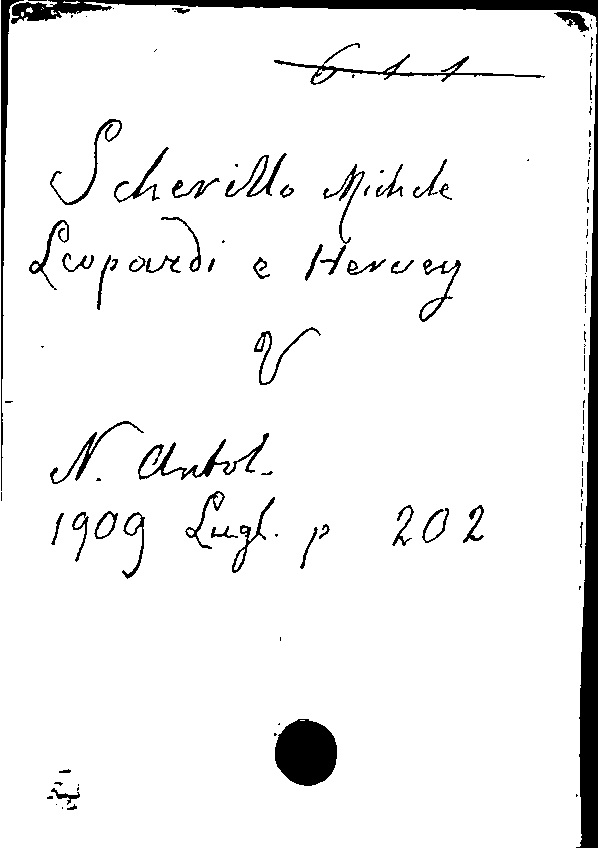 6. 1. 1
Scherillo Michele
Leopardi e Hervey
V
N. Antol.
1909 Lugl. p 202